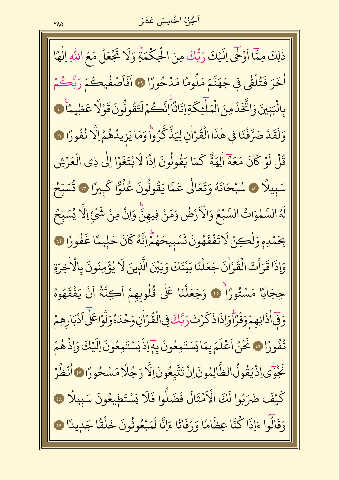 اَلْجُزْءُ الْخَامِسَ عَشَرَ
٢٨٥
ذٰلِكَ مِمَّٓا اَوْحٰٓى اِلَيْكَ رَبُّكَ مِنَ الْحِكْمَةِۜ وَلَا تَجْعَلْ مَعَ اللّٰهِ اِلٰهًا
اٰخَرَ فَتُلْقٰى ف۪ي جَهَنَّمَ مَلُومًا مَدْحُورًا ﴿٣٩﴾ اَفَاَصْفٰيكُمْ رَبُّكُمْ
بِالْبَن۪ينَ وَاتَّخَذَ مِنَ الْمَلٰٓئِكَةِ اِنَاثًاۜ اِنَّكُمْ لَتَقُولُونَ قَوْلًا عَظ۪يمًا۟ ﴿٤٠﴾
وَلَقَدْ صَرَّفْنَا ف۪ي هٰذَا الْقُرْاٰنِ لِيَذَّكَّرُواۜ وَمَا يَز۪يدُهُمْ اِلَّا نُفُورًا ﴿٤١﴾
قُلْ لَوْ كَانَ مَعَهُٓ اٰلِهَةٌ كَمَا يَقُولُونَ اِذًا لَابْتَغَوْا اِلٰى ذِي الْعَرْشِ
سَب۪يلًا ﴿٤٢﴾ سُبْحَانَهُ وَتَعَالٰى عَمَّا يَقُولُونَ عُلُوًّا كَب۪يرًا ﴿٤٣﴾ تُسَبِّحُ
لَهُ السَّمٰوَاتُ السَّبْعُ وَالْاَرْضُ وَمَنْ ف۪يهِنَّۜ وَاِنْ مِنْ شَيْءٍ اِلَّا يُسَبِّحُ
بِحَمْدِه۪ وَلٰكِنْ لَا تَفْقَهُونَ تَسْب۪يحَهُمْۜ اِنَّهُ كَانَ حَل۪يمًا غَفُورًا ﴿٤٤﴾
وَاِذَا قَرَاْتَ الْقُرْاٰنَ جَعَلْنَا بَيْنَكَ وَبَيْنَ الَّذ۪ينَ لَا يُؤْمِنُونَ بِالْاٰخِرَةِ
حِجَابًا مَسْتُورًاۙ ﴿٤٥﴾ وَجَعَلْنَا عَلٰى قُلُوبِهِمْ اَكِنَّةً اَنْ يَفْقَهُوهُ
وَف۪ٓي اٰذَانِهِمْ وَقْرًاۜ وَاِذَا ذَكَرْتَ رَبَّكَ فِي الْقُرْاٰنِ وَحْدَهُ وَلَّوْا عَلٰٓى اَدْبَارِهِمْ
نُفُورًا ﴿٤٦﴾ نَحْنُ اَعْلَمُ بِمَا يَسْتَمِعُونَ بِه۪ٓ اِذْ يَسْتَمِعُونَ اِلَيْكَ وَاِذْ هُمْ
نَجْوٰٓى اِذْ يَقُولُ الظَّالِمُونَ اِنْ تَتَّبِعُونَ اِلَّا رَجُلًا مَسْحُورًا ﴿٤٧﴾ اُنْظُرْ
كَيْفَ ضَرَبُوا لَكَ الْاَمْثَالَ فَضَلُّوا فَلَا يَسْتَط۪يعُونَ سَب۪يلًا ﴿٤٨﴾
وَقَالُٓوا ءَاِذَا كُنَّا عِظَامًا وَرُفَاتًا ءَاِنَّا لَمَبْعُوثُونَ خَلْقًا جَد۪يدًا ﴿٤٩﴾